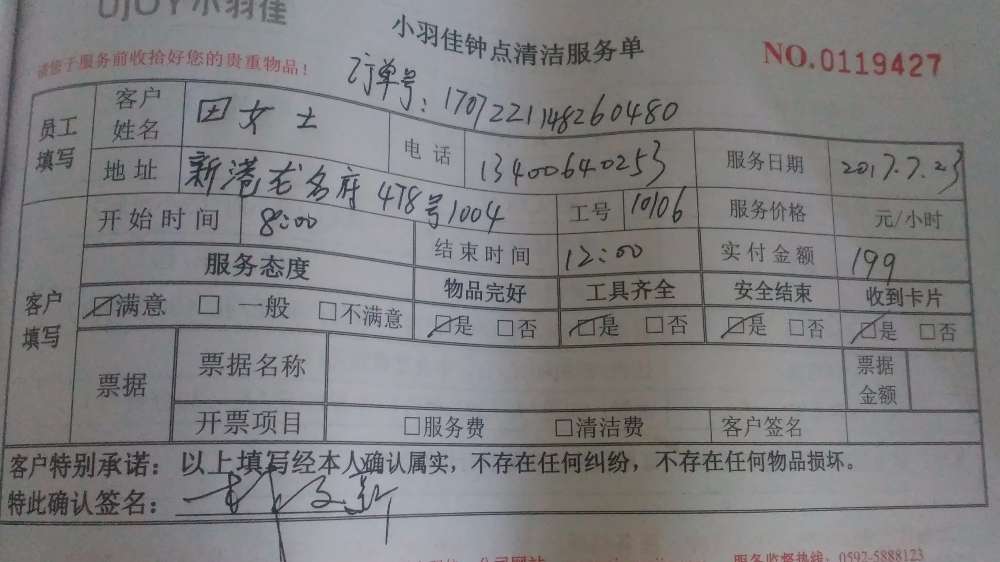 UJOY小羽佳
小羽佳钟点清洁服务单
NO.0119427
请您于服务前收拾好您的贵重物品!
订单号:1707221148260480
员工填写 客户姓名 田女士 电话 13400640253 服务日期 2017.7.23
地址 新港龙名府478号1004 工号 10106 服务价格 元/小时
客户填写 开始时间 8:00 结束时间 12:00 实付金额 199
服务态度 物品完好 工具齐全 安全结束 收到卡片
☑满意 □一般 □不满意 ☑是 □否 ☑是 □否 ☑是 □否 ☑是 □否
票据 票据名称 票据金额
开票项目 □服务费 □清洁费 客户签名
客户特别承诺:以上填写经本人确认属实,不存在任何纠纷,不存在任何物品损坏。
特此确认签名:
服务监督热线:0592-5888123